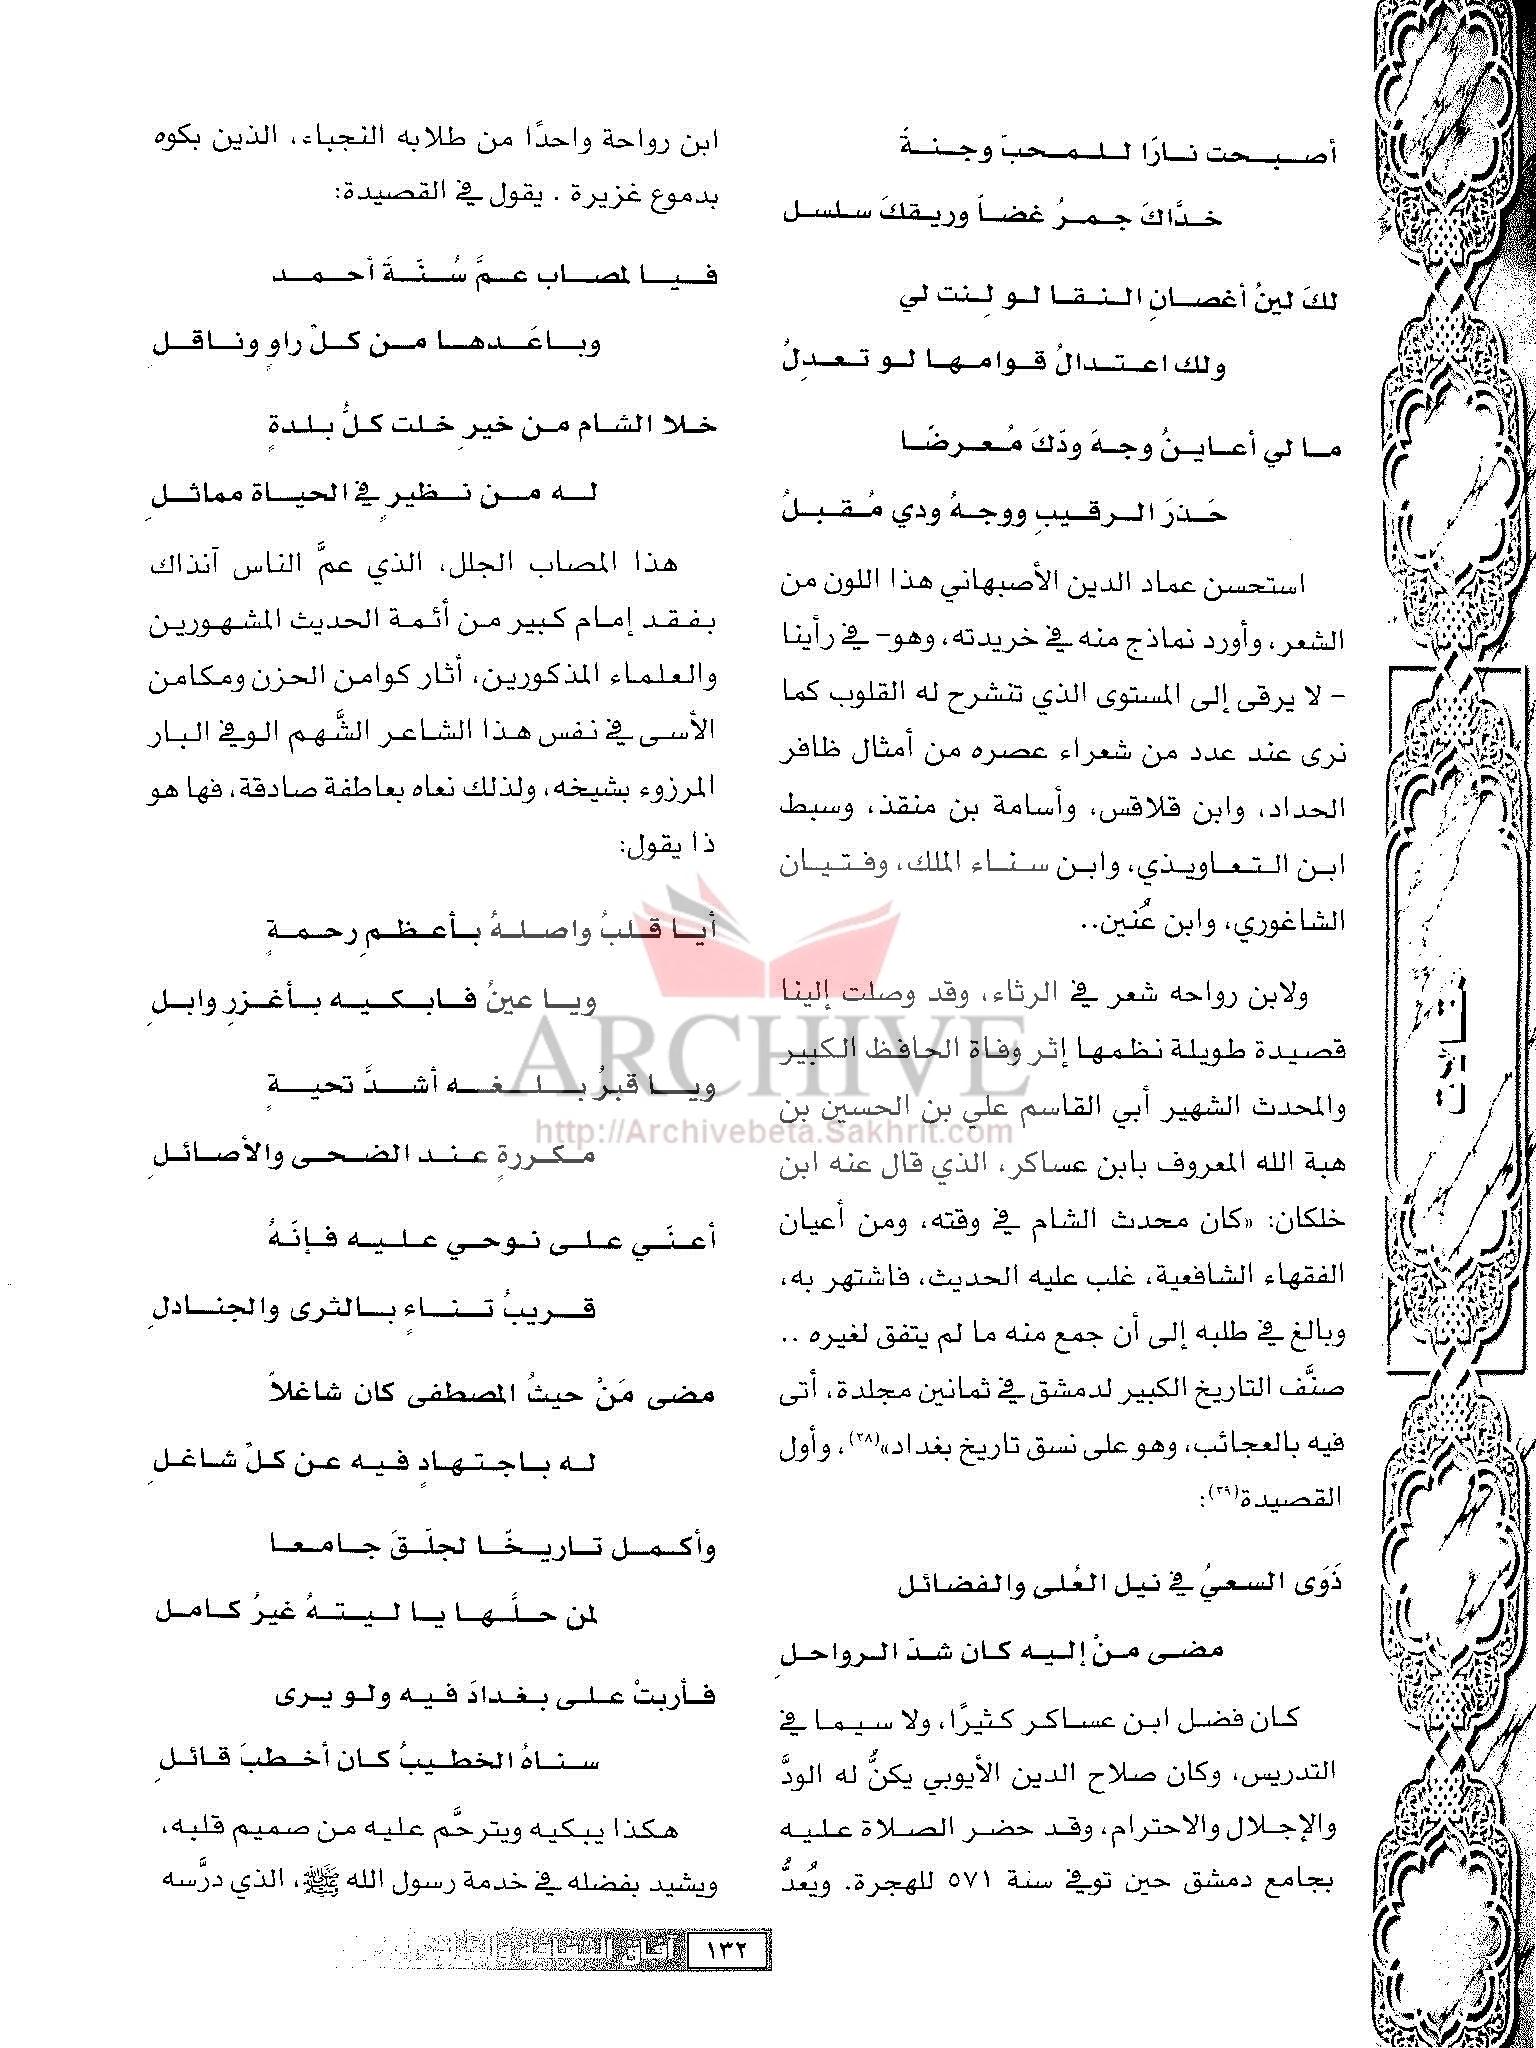 أصبحت نارًا للمحبّ وجنةً
خدَّاكَ جمرُ غضاً وريقكَ سلسل
لكَ لينُ أغصانِ النقا لو لِنت لي
ولك اعتدالُ قوامها لو تعدِلُ
ما لي أعاينُ وجهَ ودّكَ مُعرضًا
حَذرَ الرقيبِ ووجهُ ودي مُقبلُ
استحسن عماد الدين الأصبهاني هذا اللون من
الشعر، وأورد نماذج منه في خريدته، وهو- في رأينا
- لا يرقى إلى المستوى الذي تنشرح له القلوب كما
نرى عند عدد من شعراء عصره من أمثال ظافر
الحداد، وابن قلاقس، وأسامة بن منقذ، وسبط
ابن التعاويذي، وابن سناء الملك، وفتيان
الشاغوري، وابن عُنين..
ولابن رواحه شعر في الرثاء، وقد وصلت إلينا
قصيدة طويلة نظمها إثر وفاة الحافظ الكبير
والمحدث الشهير أبي القاسم علي بن الحسين بن
هبة الله المعروف بابن عساكر، الذي قال عنه ابن
خلكان: «كان محدث الشام في وقته، ومن أعيان
الفقهاء الشافعية، غلب عليه الحديث، فاشتهر به،
وبالغ في طلبه إلى أن جمع منه ما لم يتفق لغيره ..
صنَّف التاريخ الكبير لدمشق في ثمانين مجلدة، أتى
فيه بالعجائب، وهو على نسق تاريخ بغداد»(٣٨)، وأول
القصيدة(٣٩):
ذَوَى السعيُ في نيل العُلى والفضائل
مضى منْ إليه كان شدّ الرواحلِ
كان فضل ابن عساكر كثيرًا، ولا سيما في
التدريس، وكان صلاح الدين الأيوبي يكنُّ له الودَّ
والإجلال والاحترام، وقد حضر الصلاة عليه
بجامع دمشق حين توفي سنة ٥٧١ للهجرة. ويُعدُّ
ابن رواحة واحدًا من طلابه النجباء، الذين بكوه
بدموع غزيرة . يقول في القصيدة:
فيا لمصاب عمَّ سُنَّةَ أحمد
وباعَدها من كلّ راوٍ وناقل
خلا الشام من خيرٍ خلت كلُّ بلدةٍ
له من نظيرٍ في الحياة مماثلِ
هذا المصاب الجلل، الذي عمَّ الناس آنذاك
بفقد إمام كبير من أئمة الحديث المشهورين
والعلماء المذكورين، أثار كوامن الحزن ومكامن
الأسى في نفس هذا الشاعر الشَّهم الوفي البار
المرزوء بشيخه، ولذلك نعاه بعاطفة صادقة، فها هو
ذا يقول:
أيا قلبُ واصلهُ بأعظمِ رحمةٍ
ويا عينُ فابكيه بأغزرِ وابلِ
ويا قبرُ بلغه أشدَّ تحيةٍ
مكررةٍ عند الضحى والأصائلِ
أعنّي على نوحي عليه فإنّهُ
قريبُ تناءٍ بالثرى والجنادلِ
مضى مَنْ حيثُ المصطفى كان شاغلاً
له باجتهادٍ فيه عن كلّ شاغلِ
وأكمل تاريخًا لجلّقَ جامعا
لمن حلَّها يا ليتهُ غيرُ كامل
فأربتْ على بغدادَ فيه ولو يرى
سناهُ الخطيبُ كان أخطبَ قائلِ
هكذا يبكيه ويترحَّم عليه من صميم قلبه،
ويشيد بفضله في خدمة رسول الله ﷺ، الذي درَّسه
مقالات
ARCHIVE
http://Archivebeta.Sakhrit.com
١٣٢ آفاق الثقافة والتراث